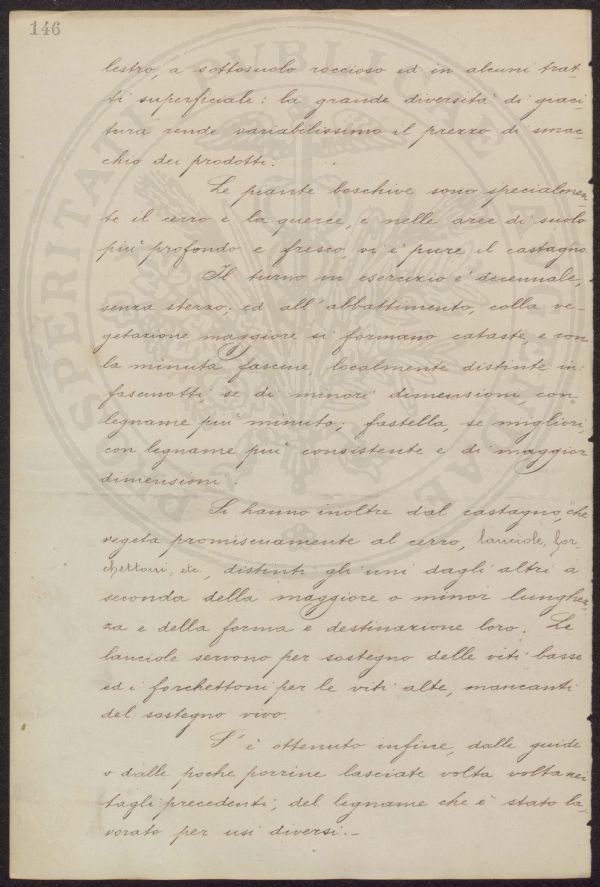 146
lestro, a sottosuolo roccioso ed in alcuni trat-
ti superficiale: la grande diversità di giaci-
tura rende variabilissimo il prezzo di smac-
chio dei prodotti.
Le piante boschive sono specialmen-
te il cerro e la querce, e nelle aree di suolo
più profondo e fresco, vi è pure il castagno.
Il turno in esercizio è decennale,
senza sterzo; ed all'abbattimento, colla ve-
getazione maggiore si formano cataste, e con
la minuta fascine, localmente distinte in:
fascinotti, se di minori dimensioni, con
legname più minuto; fastella, se migliori,
con legname più consistente e di maggior
dimensioni.
Si hanno inoltre dal castagno, che
vegeta promiscuamente al cerro, lanciole, for-
chettoni, etc, distinti gli uni dagli altri a
seconda della maggiore o minor lunghez-
za e della forma e destinazione loro. Le
lanciole servono per sostegno delle viti basse
ed i forchettoni per le viti alte, mancanti
del sostegno vivo.
S'è ottenuto infine, dalle guide
o dalle poche porrine lasciate volta volta nei
tagli precedenti, del legname che è stato la-
vorato per usi diversi.-